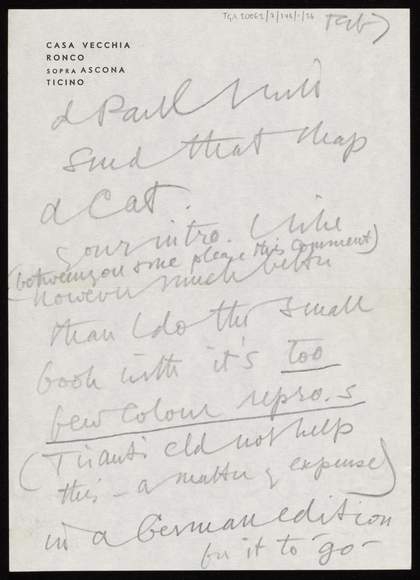 TGA 20052/2/
CASA VECCHIA
RONCO
SOPRA ASCONA
TICINO
d Paul
send that chap
a Cat.
your intro. I like
(between you & me please this comment)
however much better
than I do the small
book with it's too
few colour repro.s
(Tiranti cld not help
this – a matter of expense)
in a German edition
for it to -go-